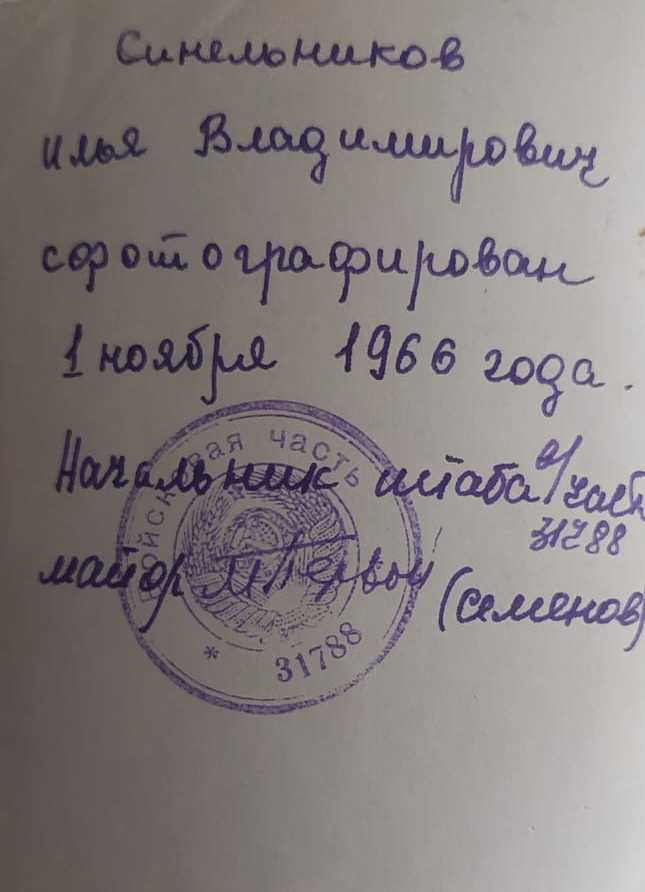 Синельников
Илья Владимирович
сфотографирован
1 ноября 1966 года.
Начальник штаба в/част
31788
майор
(Семенов)
Войсковая часть
* 31788